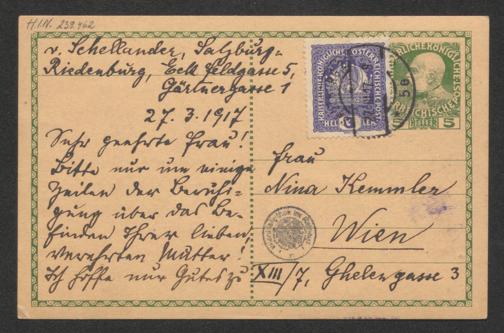 H.I.N. 239.462
v. Schellander, Salzburg-
Riedenburg, Eck Feldgasse 5,
Gärtnergasse 1
27. 3. 1917
Sehr geehrte Frau!
Bitte nur um einige
Zeilen der Beruhi-
gung über das Be-
finden Ihrer lieben,
verehrten Mutter!
Ich hoffe nur Gutes zu
KAISERLICHE KÖNIGLICHE ÖSTERREICHISCHE POST
HELLER
5 HELLER 5
Frau
Nina Kemmler
Wien
XIII/7, Ghelengasse 3